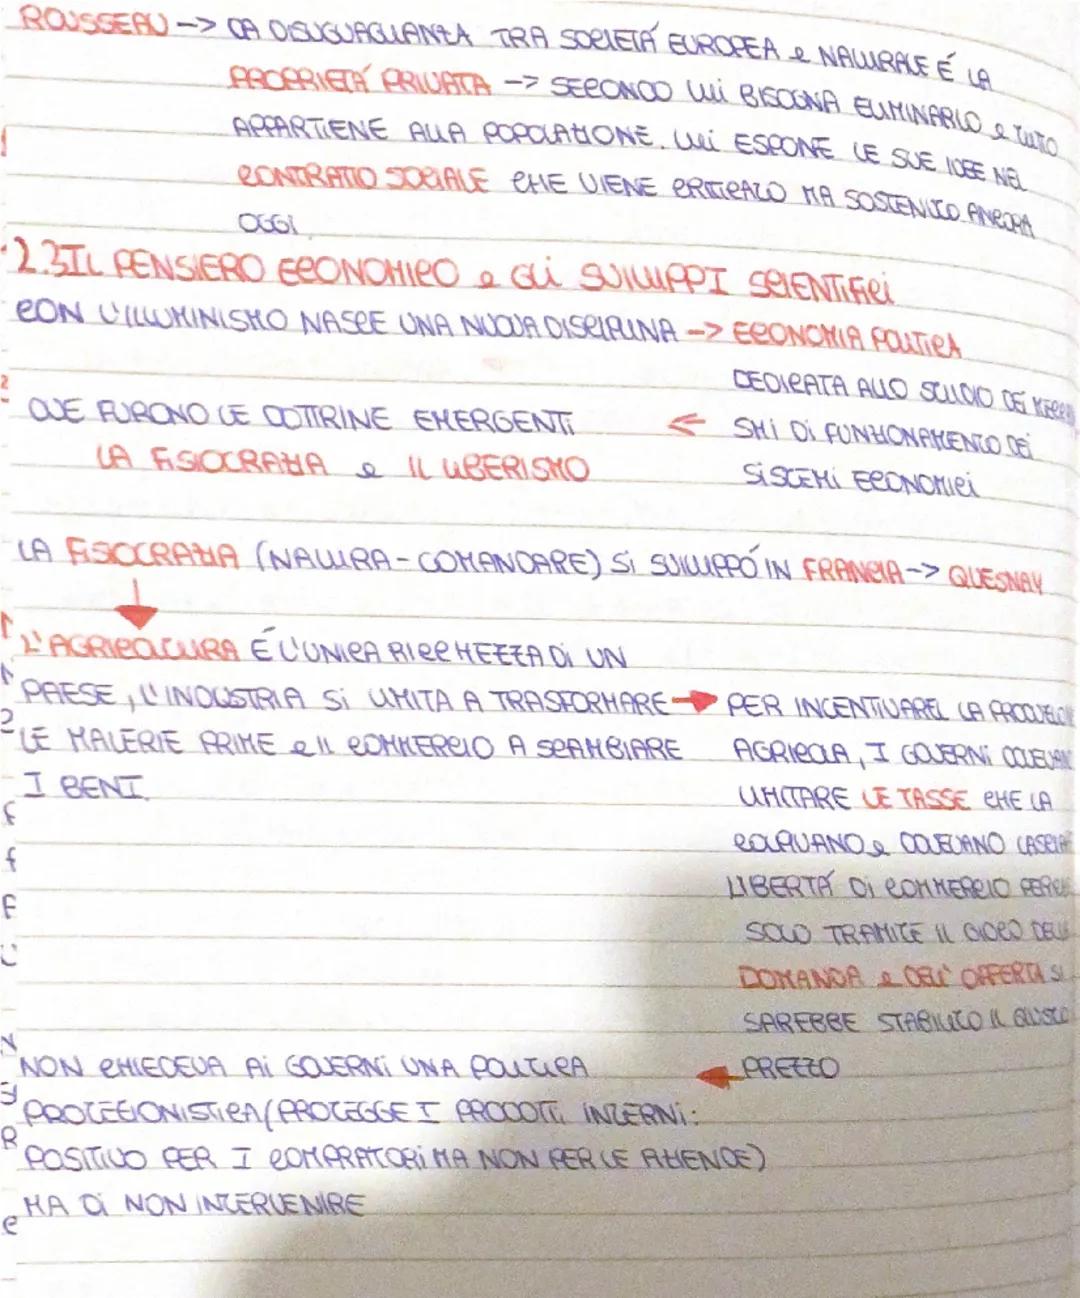 ROUSSEAU -> LA DISUGUAGLIANZA TRA SOCIETÁ EUROPEA e NATURALE É LA
PROPRIETÁ PRIVATA -> SECONDO lui BISOGNA ELIMINARLO e TUTO
APPARTIENE ALLA POPOLAZIONE. lui ESPONE LE SUE IDEE NEL
CONTRATTO SOCIALE CHE VIENE CRITICATO MA SOSTENUTO ANCORA
OGGI
2.3 IL PENSIERO ECONOMICO e Gli SVILUPPI SCIENTIFICi
CON L'ILLUMINISMO NASCE UNA NUOVA DISCIPLINA -> ECONOMIA POLITICA
DEDICATA ALLO STUDIO DEi MECCANI
SMi Di FUNZIONAMENTO DEi
SiSTEMi ECONOMICi
DUE FURONO LE DOTTRINE EMERGENTi
LA FISIOCRAZIA e IL LIBERISMO
LA FISIOCRAZIA (NATURA-COMANDARE) Si SVILUPPÓ IN FRANCIA -> QUESNAY
L'AGRICOLTURA É L'UNICA RICCHEZZA Di UN
PAESE, L'INDUSTRIA Si LIMITA A TRASFORMARE
LE MATERIE PRIME e IL COMMERCIO A SCAMBIARE
I BENI.
PER INCENTIVARE LA PRODUZIONE
AGRICOLA, I GOVERNi DOVEVANO
LIMITARE LE TASSE CHE LA
COLPIVANO e DOVEVANO LASCIAR
LIBERTÁ Di COMMERCIO
SOLO TRAMITE IL GIOCO DELLA
DOMANDA e DELL'OFFERTA Si
SAREBBE STABILITO IL GIUSTO
PREZZO
NON CHIEDEVA Ai GOVERNi UNA POLITICA
PROTEZIONISTICA (PROTEGGE I PRODOTTi INTERNi:
POSITIVO PER I COMPRATORi MA NON PER LE AZIENDE)
MA Di NON INTERVENIRE